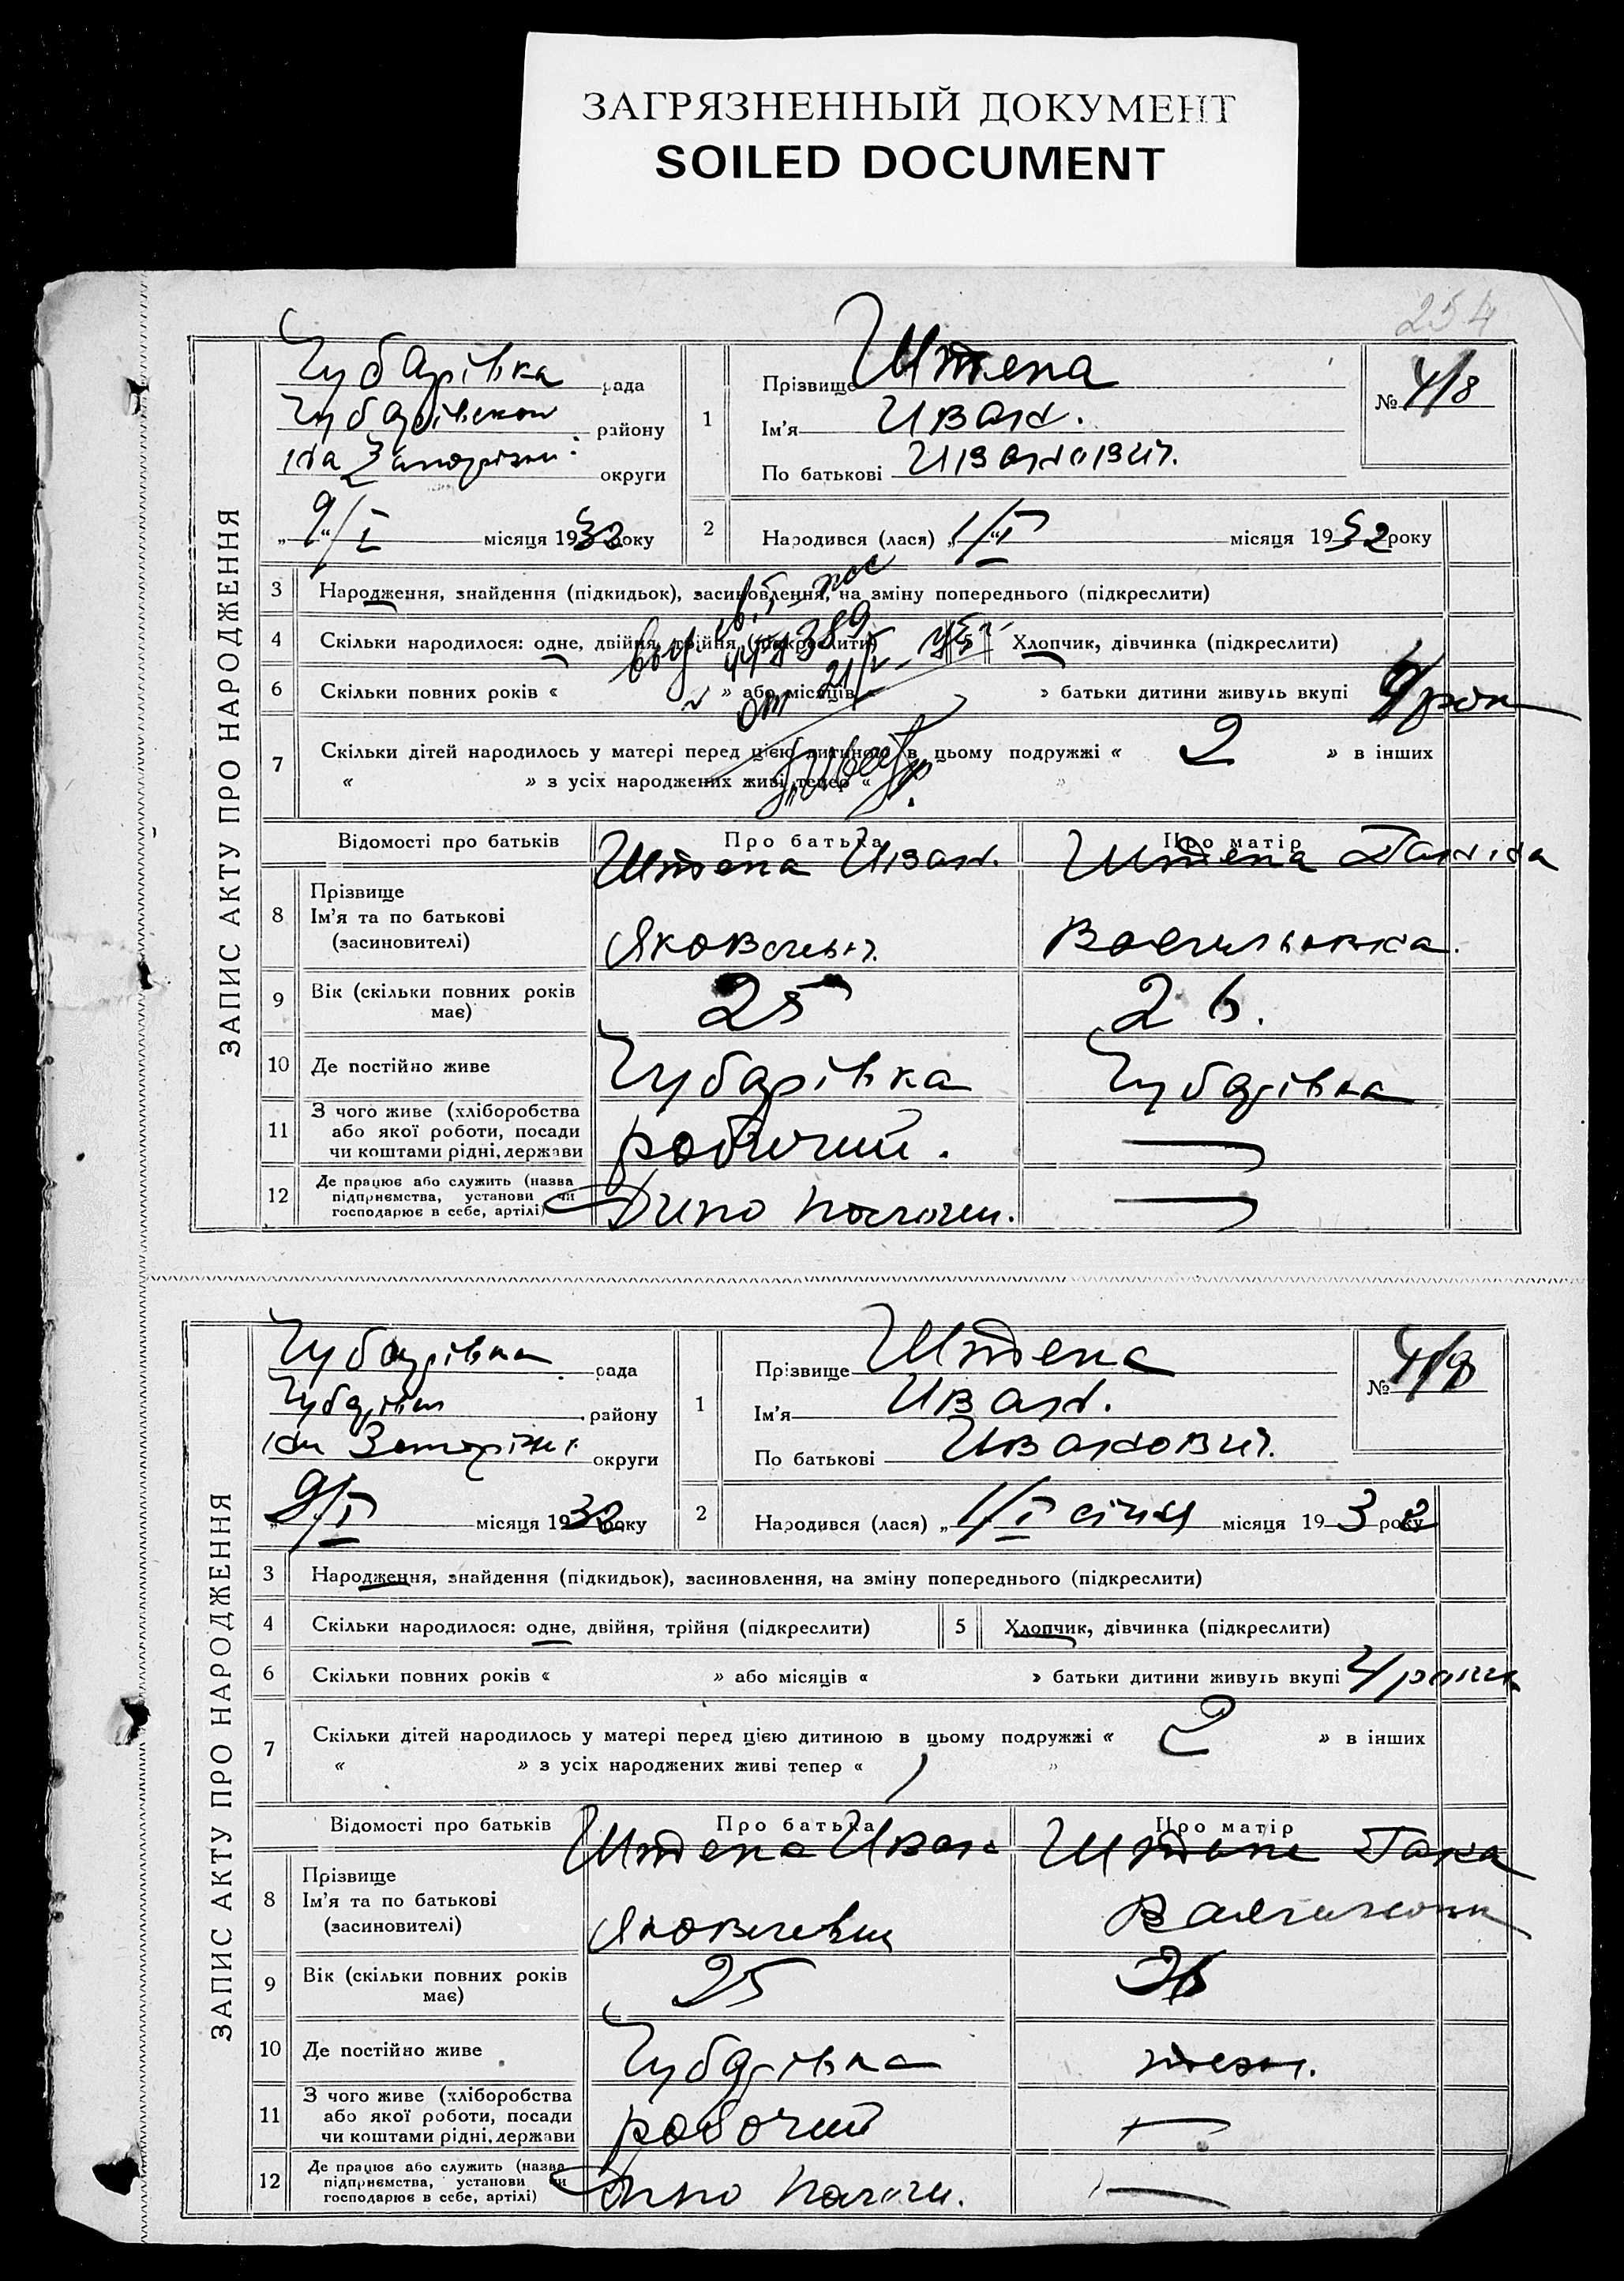 ЗАГРЯЗНЕННЫЙ ДОКУМЕНТ
SOILED DOCUMENT
254
ЗАПИС АКТУ ПРО НАРОДЖЕННЯ
Чубарівка рада
району
округи
„9/I“ місяця 1932 року
1 Прізвище Штепа
Ім'я Иван.
По батькові Иванович.
№ 4/8
2 Народився (лася) „1/I“ місяця 1932 року
3 Народження, знайдення (підкидьок), засиновлення, на зміну попереднього (підкреслити)
4 Скільки народилося: одне, двійня, трійня (підкреслити) 5 Хлопчик, дівчинка (підкреслити)
389
от 21/V
6 Скільки повних років « » або місяців « » батьки дитини живуть вкупі
7 Скільки дітей народилось у матері перед цією дитиною в цьому подружжі « 2 » в інших
« » з усіх народжених живі тепер « »
Відомості про батьків Про батька Про матір
8 Прізвище Штепа Иван. Штепа
Ім'я та по батькові
(засиновителі)
9 Вік (скільки повних років має) 25 26.
10 Де постійно живе Чубарівка Чубарівка
11 З чого живе (хліборобства
або якої роботи, посади робочий. —
чи коштами рідні, держави
12 Де працює або служить (назва
підприємства, установи чи Депо —
господарює в себе, артілі)
ЗАПИС АКТУ ПРО НАРОДЖЕННЯ
Чубарівка рада
району
округи
„9/I місяця 1932 року
1 Прізвище Штепа
Ім'я Иван.
По батькові Иванович.
№ 4/8
2 Народився (лася) „1/I січня місяця 1932 року
3 Народження, знайдення (підкидьок), засиновлення, на зміну попереднього (підкреслити)
4 Скільки народилося: одне, двійня, трійня (підкреслити) 5 Хлопчик, дівчинка (підкреслити)
6 Скільки повних років « » або місяців « » батьки дитини живуть вкупі 4
7 Скільки дітей народилось у матері перед цією дитиною в цьому подружжі « 2 » в інших
« » з усіх народжених живі тепер « »
Відомості про батьків Про батька Про матір
8 Прізвище Штепа Иван Штепа
Ім'я та по батькові
(засиновителі)
9 Вік (скільки повних років має) 25 26
10 Де постійно живе Чубарівка тоже.
11 З чого живе (хліборобства
або якої роботи, посади робочий —
чи коштами рідні, держави
12 Де працює або служить (назва
підприємства, установи чи Депо —
господарює в себе, артілі)